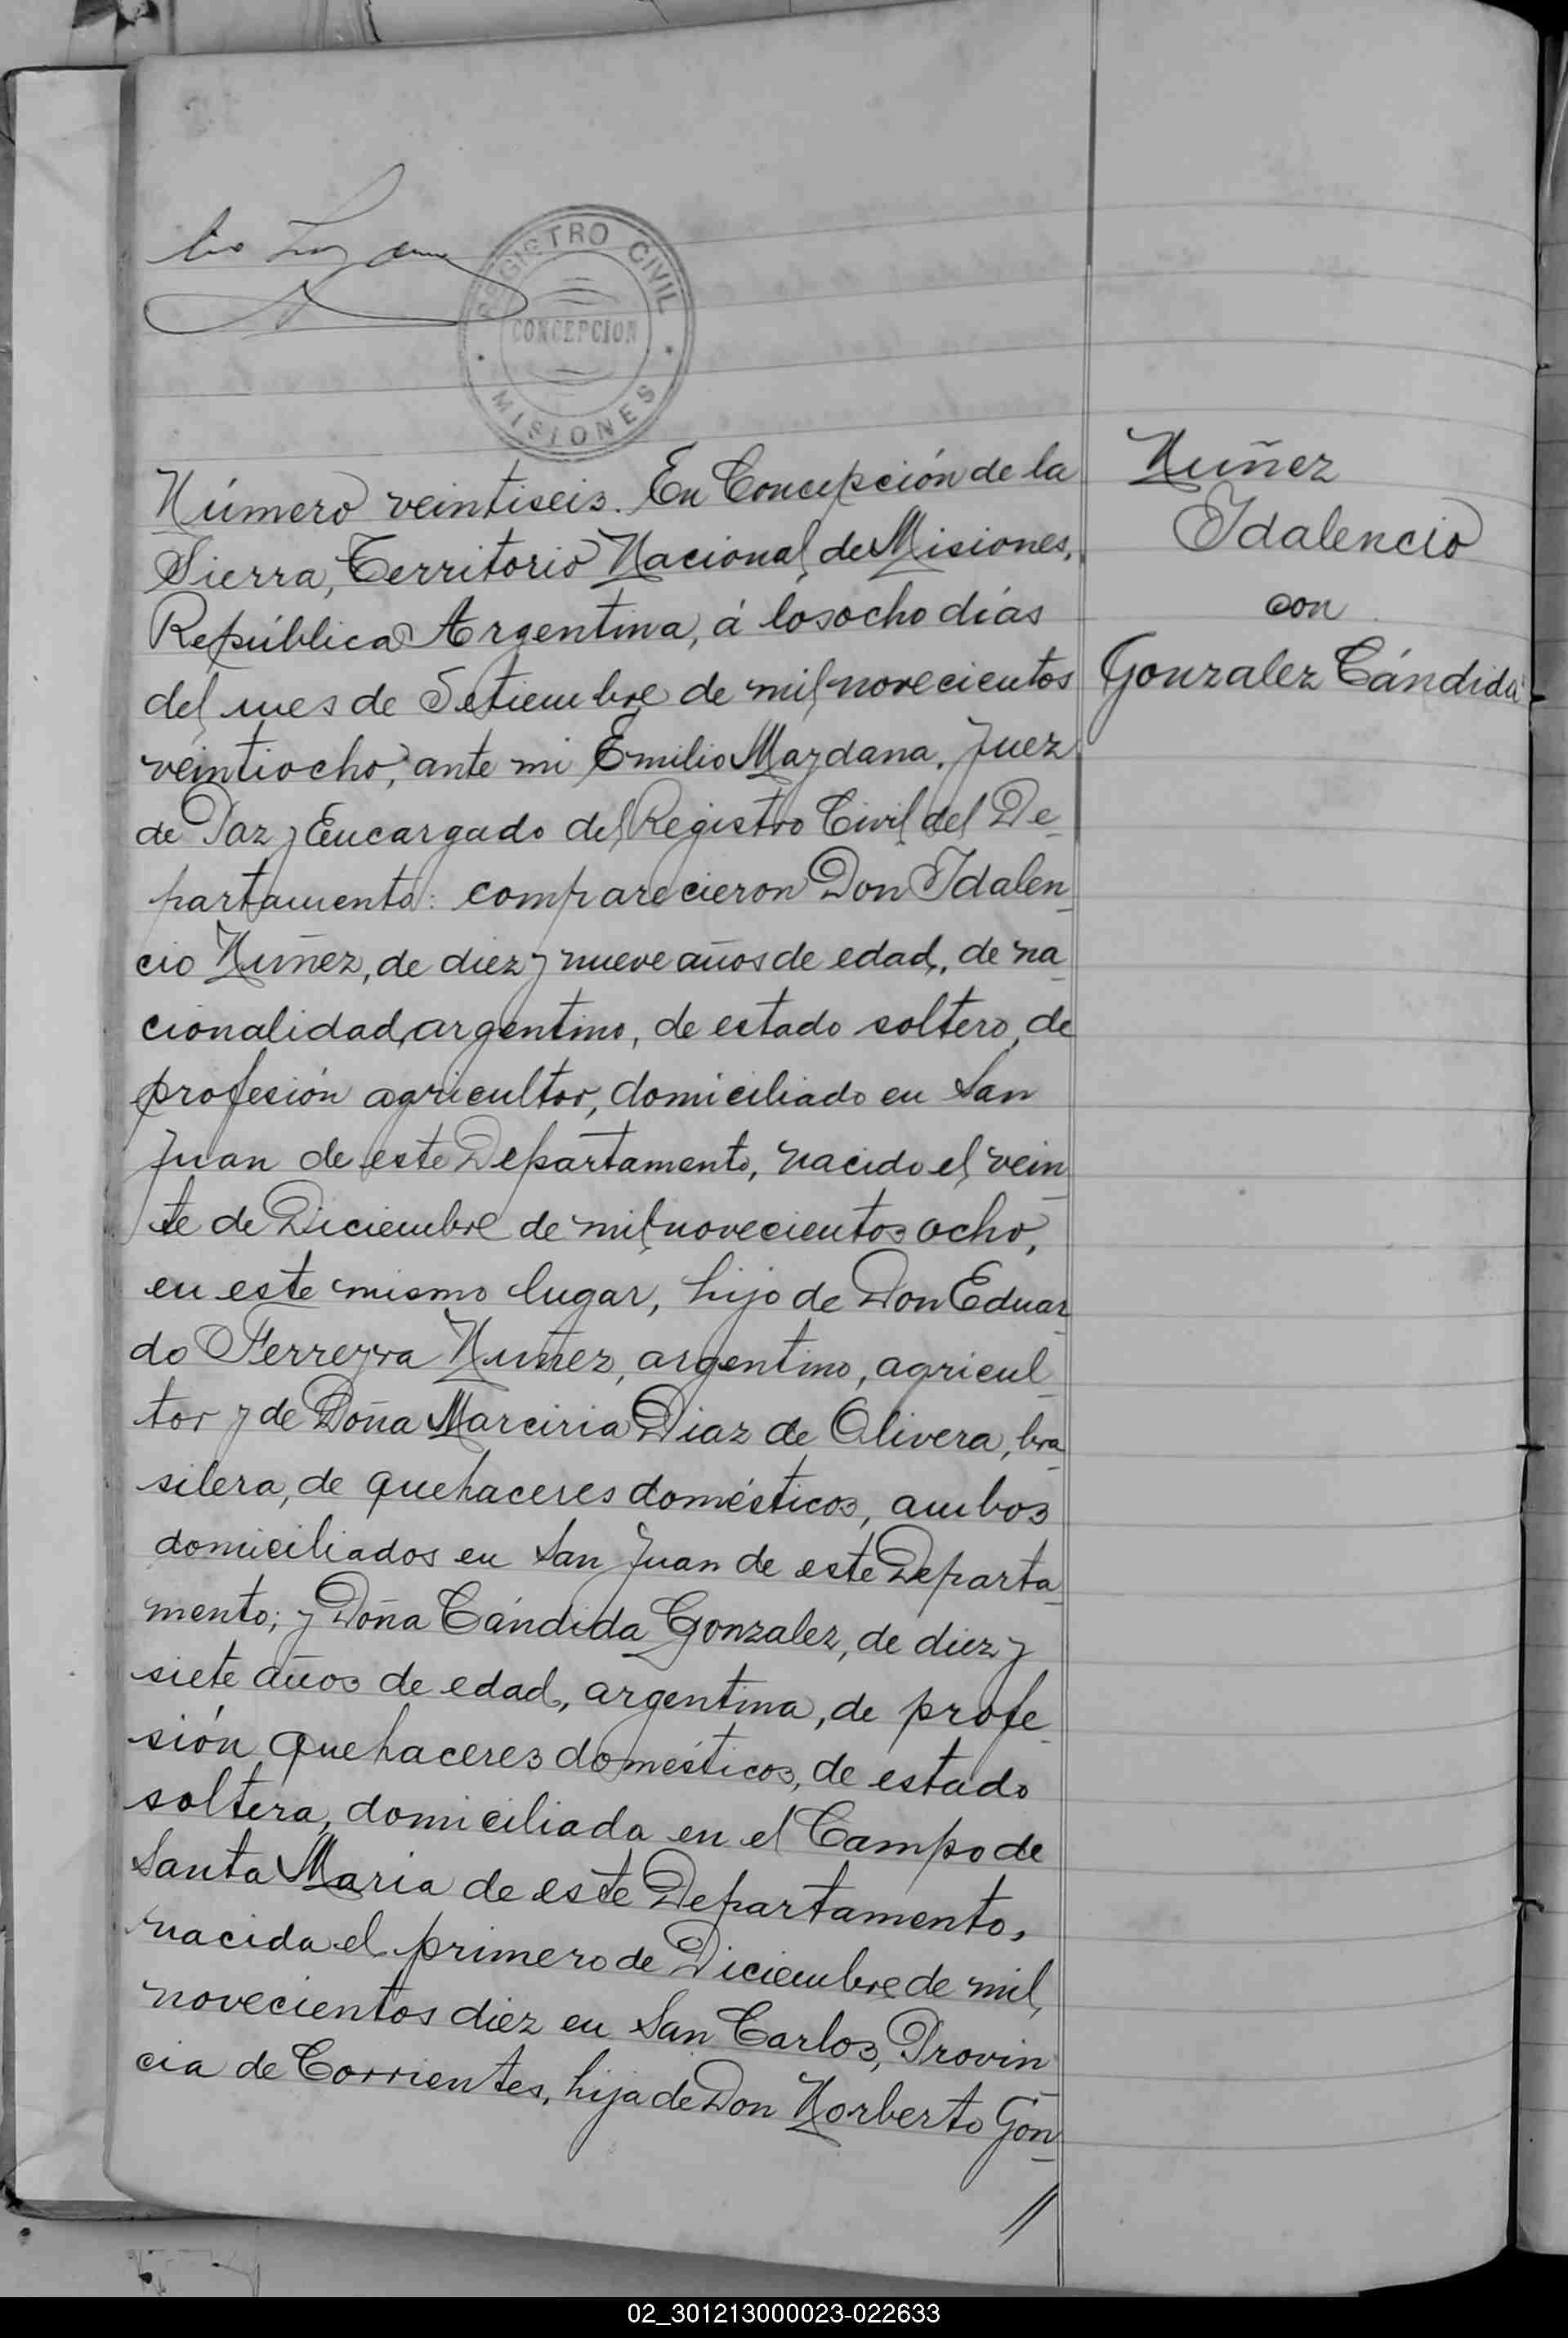 REGISTRO CIVIL
CONCEPCION
MISIONES
Núñez
Idalencio
con
Gonzalez Cándida
Número veintiseis. En Concepción de la
Sierra, Territorio Nacional de Misiones,
República Argentina, á los ocho días
del mes de Setiembre de mil novecientos
veintiocho, ante mi Emilio Maydana, Juez
de Paz y Encargado del Registro Civil del De-
partamento: comparecieron Don Idalen-
cio Nuñez, de diez y nueve años de edad, de na-
cionalidad argentino, de estado soltero, de
profesión agricultor, domiciliado en San
Juan de este Departamento, nacido el vein-
te de Diciembre de mil novecientos ocho,
en este mismo lugar, hijo de Don Eduar-
do Ferreyra Nuñez, argentino, agricul-
tor y de Doña Marciria Diaz de Olivera, bra-
silera, de quehaceres domésticos, ambos
domiciliados en San Juan de este Departa-
mento; y Doña Cándida Gonzalez, de diez y
siete años de edad, argentina, de profe-
sión quehaceres domésticos, de estado
soltera, domiciliada en el Campo de
Santa Maria de este Departamento,
nacida el primero de Diciembre de mil
novecientos diez en San Carlos, Provin-
cia de Corrientes, hija de Don Norberto Gon-
//
02_301213000023-022633